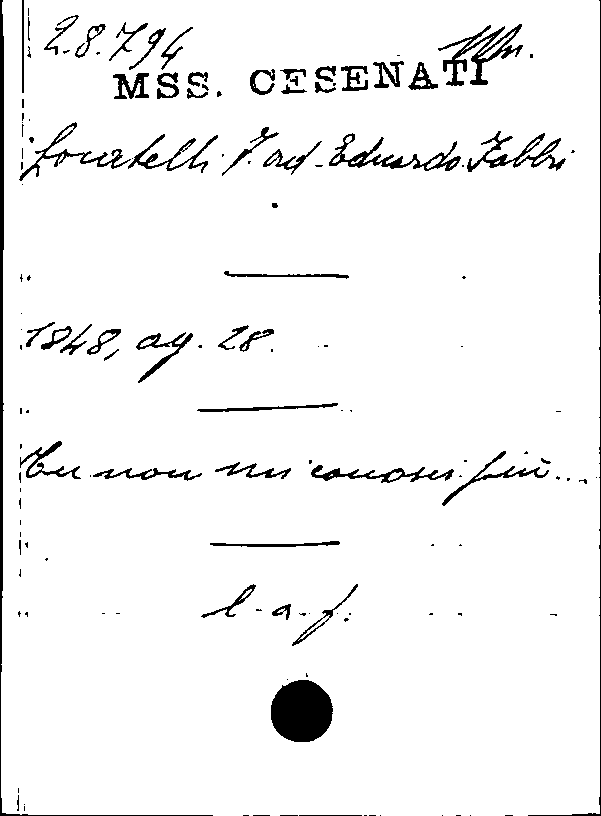 2.8.794
MSS. CESENATI
Locatelli T. ad Eduardo Fabbri
1848, ag. 28.
Tu non mi conosci più...
l. a. f.